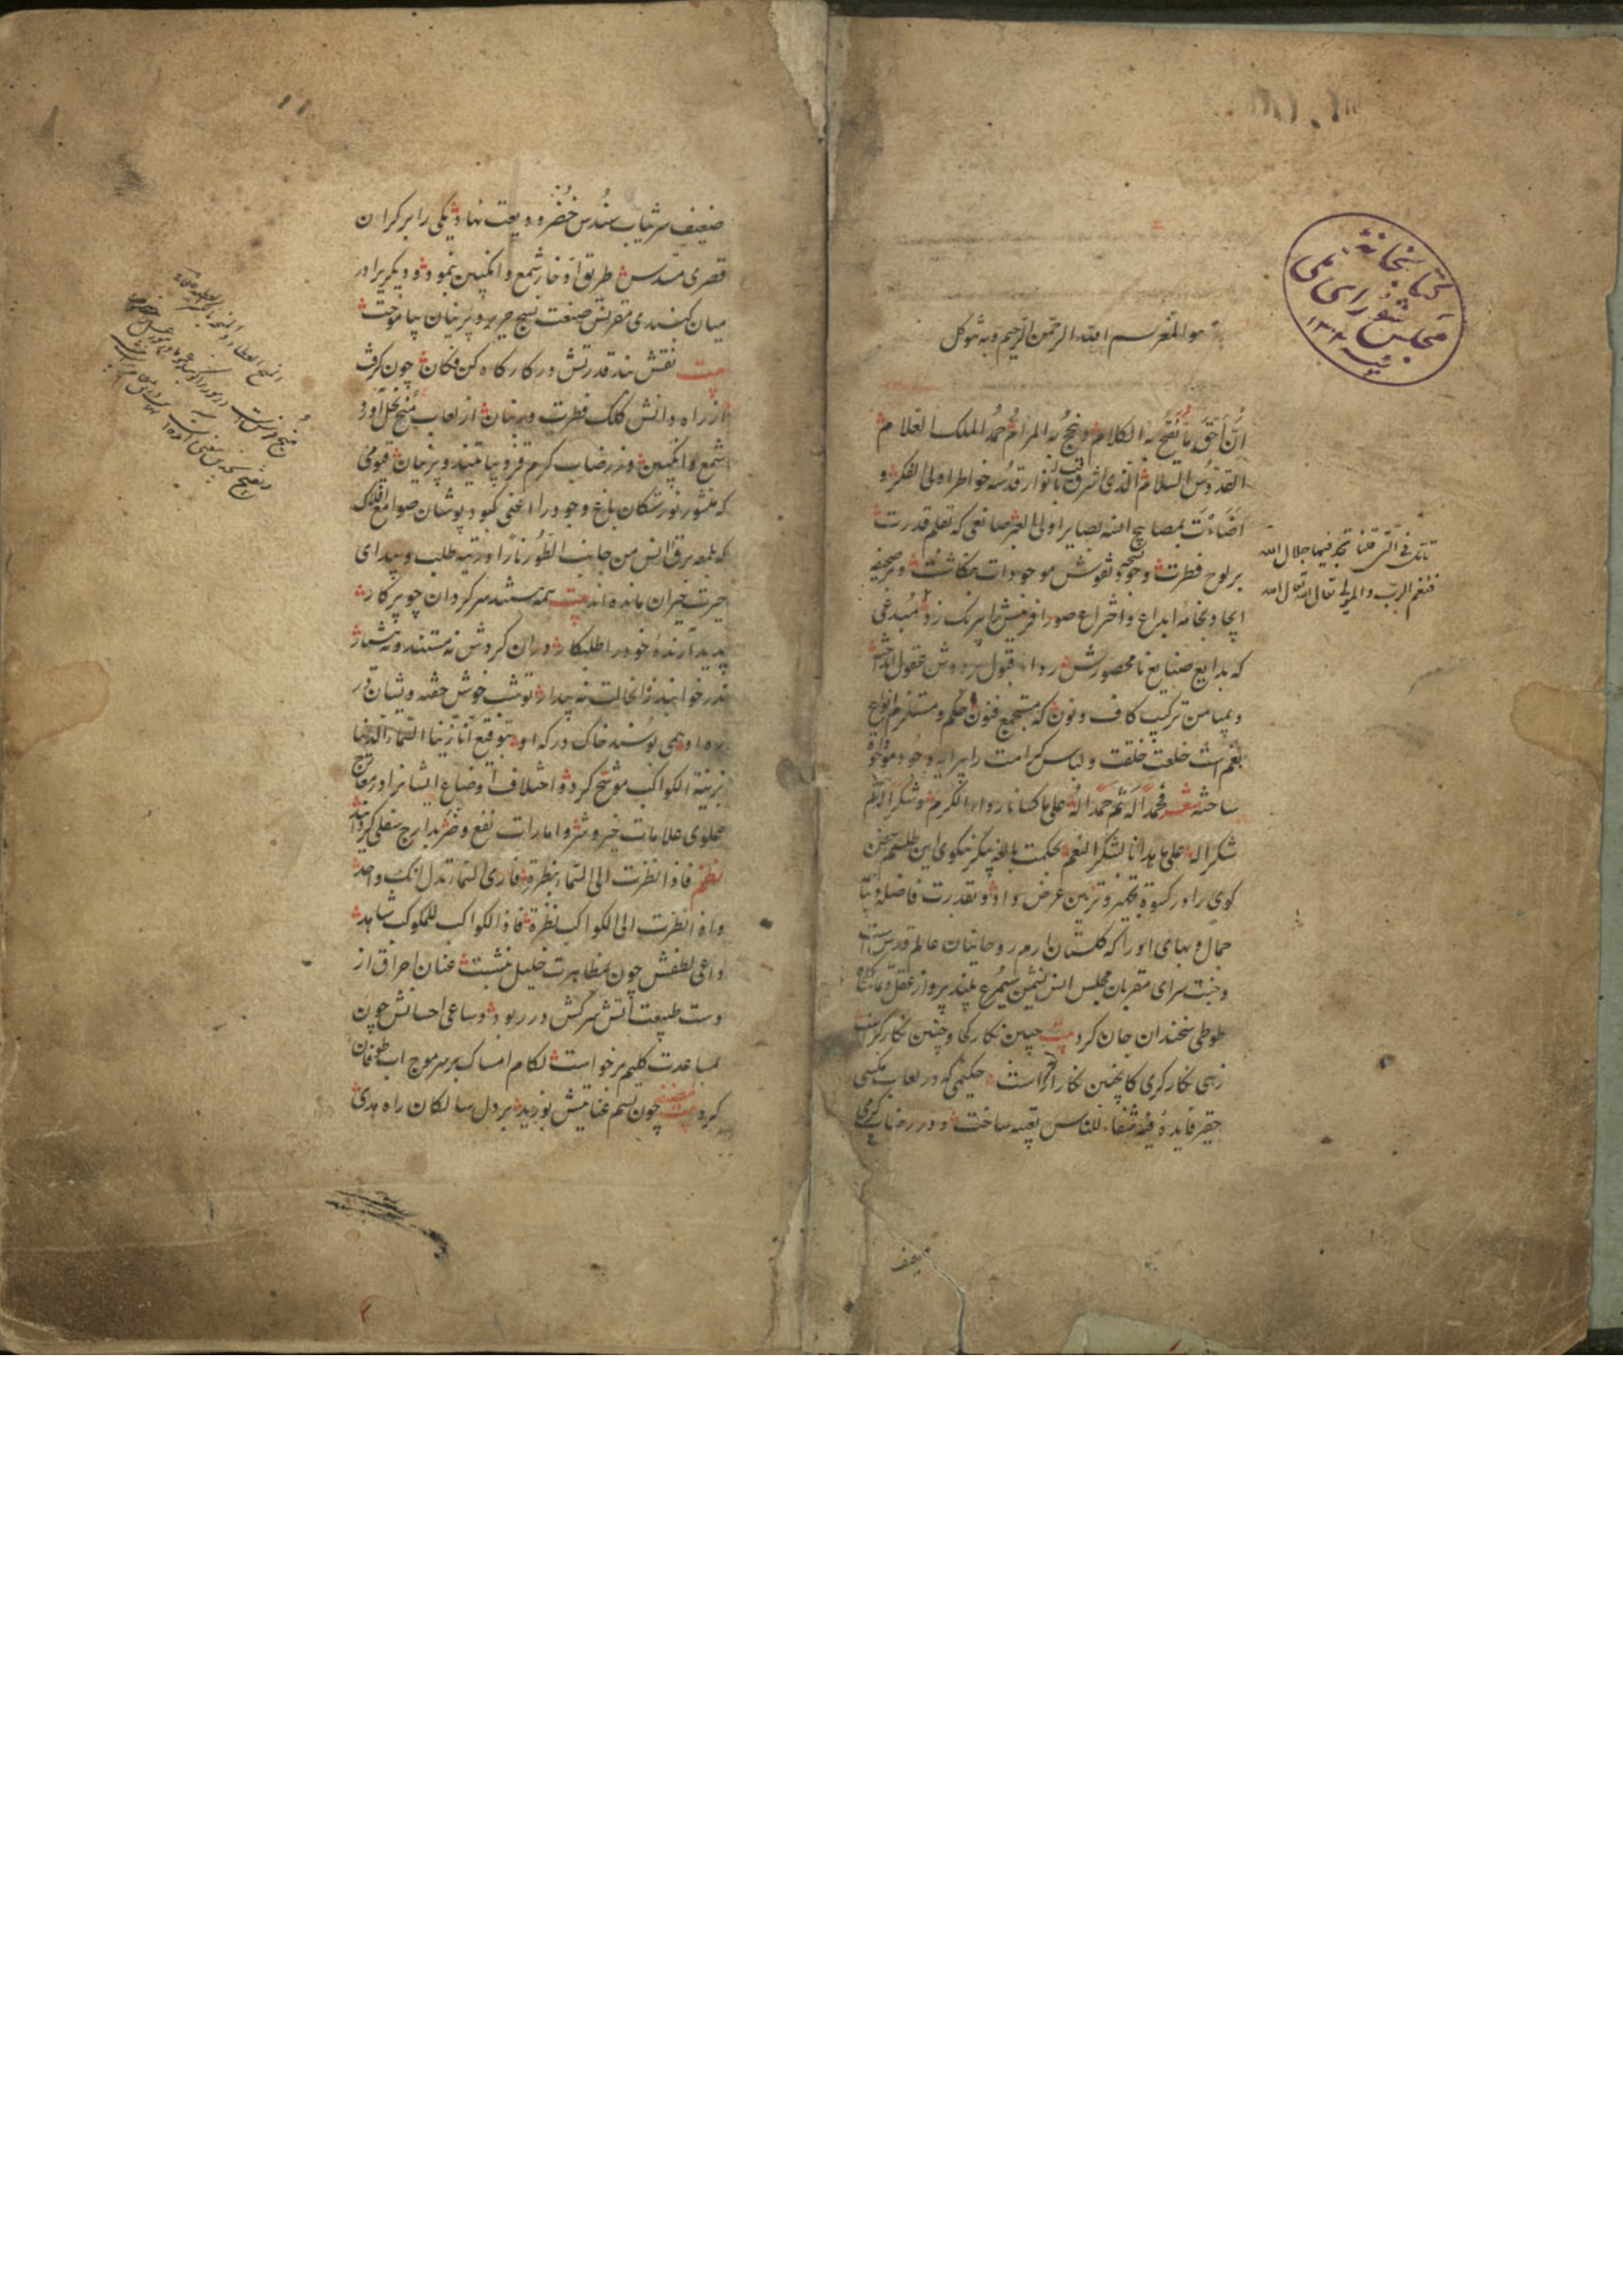 کتابخانهٔ
مجلس شورای ملی
هو المعز بسم الله الرحمن الرحیم وبه نتوکل
انّ احق ما یفتح به الکلام و ینجح به المرام حمد الملک العلام
القدوس السلام الذی اشرقت بانوار قدسه خواطر اولی الفکر و
اضاءت بمصابیح انسه بصایر اولی العبر صانعی که بقلم قدرت
بر لوح فطرت وجوه نقوش موجودات بنگاشت و بر صحیفه
ایجاد بخامهٔ ابداع و اختراع صور افرینش را برنک زد مبدعی
که بدایع صنایع نامحصورش رداء قبول بر دوش عقول انداخت
و بمیامن ترکیب کاف و نون که مستجمع فنون حکم و مستلزم انواع
نعم است خلعت خلقت و لباس کرامت را پیرایه وجود موجود
ساخته شعر فحمدا له ثم حمدا له علی ما کسانا رداء الکرم و شکرا له ثم
شکرا له علی ما هدانا لشکر النعم بحکمت بالغه پیکر نیکوی این طلسم سخن
کوی را در کسوة تکبیر و تزیین عرض داد و بقدرت فاضله
جمال و بهای او را که کلستان ارم روحانیان عالم قدس است
و جنت سرای مقربان مجلس انس نشیمن سیمرغ بلند پرواز عقل
طوطی سخندان جان کرد بیت چنین نکار کجا و چنین نکارکر است
زهی نکارکری کاینچنین نکار اراست حکیمی که در لعاب مکسی
حقیر فایدهٔ فیه شفاء للناس تعبیه ساخت و در رضاب کرمی
ضعیف
تأمل فی
فنعم الرب والمولی تعالی الله تعالی الله
ضعیف سر ثیاب سندس خضر ودیعت نهاد یکی را بر کران
قصری مسدس طریق ادخار شمع و انکبین نمود و دیکریرا در
میان کنبدی مقرنس صنعت نسج حریر و پرنیان بیاموخت
بیت نقش بند قدرتش در کارکاه کن فکان چون کرفت
از راه دانش کلک فطرت در بنان از لعاب منج نحل آورد
شمع و انکبین وز رضاب کرم قز دیبا تنید و پرنیان قیومی
که منشور نورستکان باغ وجود را اعنی کبود پوشان صوامع افلاک
که بلمعه برق انس من جانب الطور نارا در تیه طلب و بیدای
حیرت حیران مانده اند بیت همه هستند سرکردان چو پرکار
پدید آرندهٔ خود را طلبکار دران کردش نه مستند و نه هشیار
نه در خوابند زانحالت نه بیدار
ره او همی بوسند خاک درکه او بتوقیع انا زینا السماء الدنیا
بزینة الکواکب موشح کرد و اختلاف اوضاع ایشانرا در معارج
علوی علامات خیر و شر و امارات نفع و ضر مدارج سفلی کردانید
نظم فاذا نظرت الی السماء بنظرة فاری السماء تدل انک واحد
واذا نظرت الی الکواکب نظرة فاذا الکواکب للمکوکب شاهد
داعی لطفش چون بمظاهرت خلیل نشست عنان احراق از
دست طبیعت اتش سرکش در ربود و ساعی احسانش چون
بمساعدت کلیم برخواست لکام امساک بر سر موج اب طوفان
کرد لمصنفه بیت چون نسیم عنایتش بوزید بر دل سالکان راه هدی